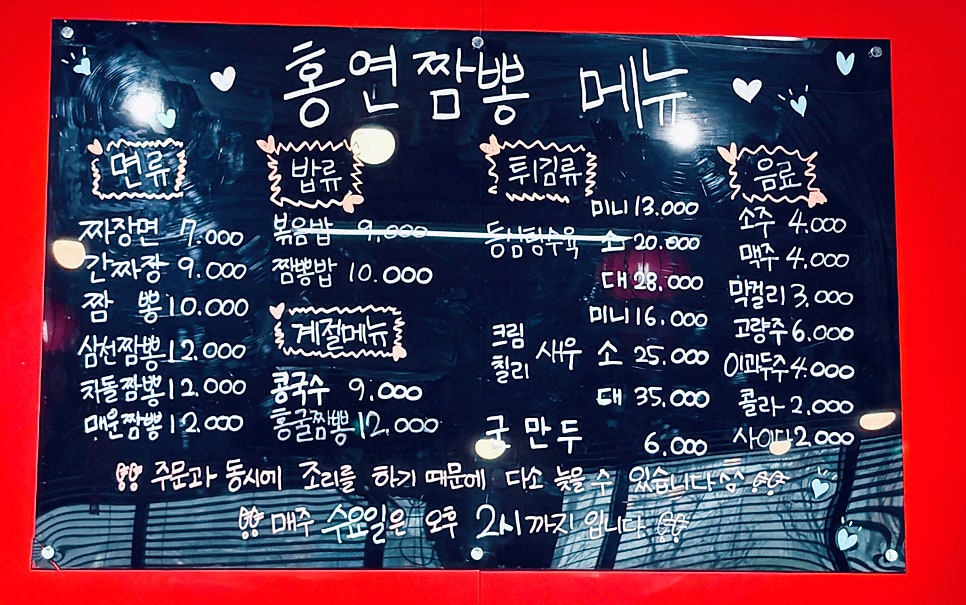 홍연짬뽕 메뉴
면류
짜장면 7.000
간짜장 9.000
짬 뽕 10.000
삼선짬뽕 12.000
차돌짬뽕 12.000
매운짬뽕 12.000
밥류
볶음밥 9.000
짬뽕밥 10.000
계절메뉴
콩국수 9.000
홍굴짬뽕 12.000
튀김류
등심탕수육
미니 13.000
소 20.000
대 28.000
크림
칠리
새우
미니 16.000
소 25.000
대 35.000
군만두 6.000
음료
소주 4.000
맥주 4.000
막걸리 3.000
고량주 6.000
이과두주 4.000
콜라 2.000
사이다 2.000
주문과 동시에 조리를 하기 때문에 다소 늦을 수 있습니다
매주 수요일은 오후 2시까지 입니다